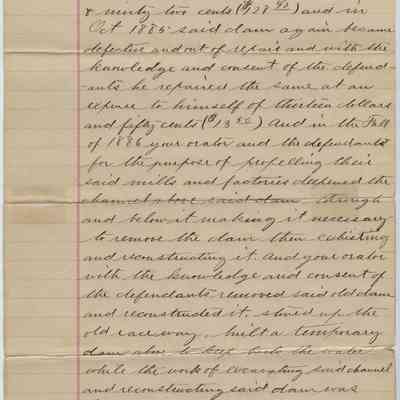 & ninety two cents ($28 92) and in
Oct 1885 said dam again became
defective and out of repair and with the
knowledge and consent of the defend-
-ants he repaired the same at an
expense to himself of thirteen dollars
and fifty cents ($13 50) And in the Fall
of 1886 your orator and the defendants
for the purpose of propelling their
said mills and factories deepened the
channel above said dam through
and below it making it necessary
to remove the dam then existing
and reconstructing it. And your orator
with the knowledge and consent of
the defendants removed said old dam
and reconstructed it. up the
old race way, built a temporary
dam above to keep back the water
while the work of excavating said channel
and reconstructing said dam was